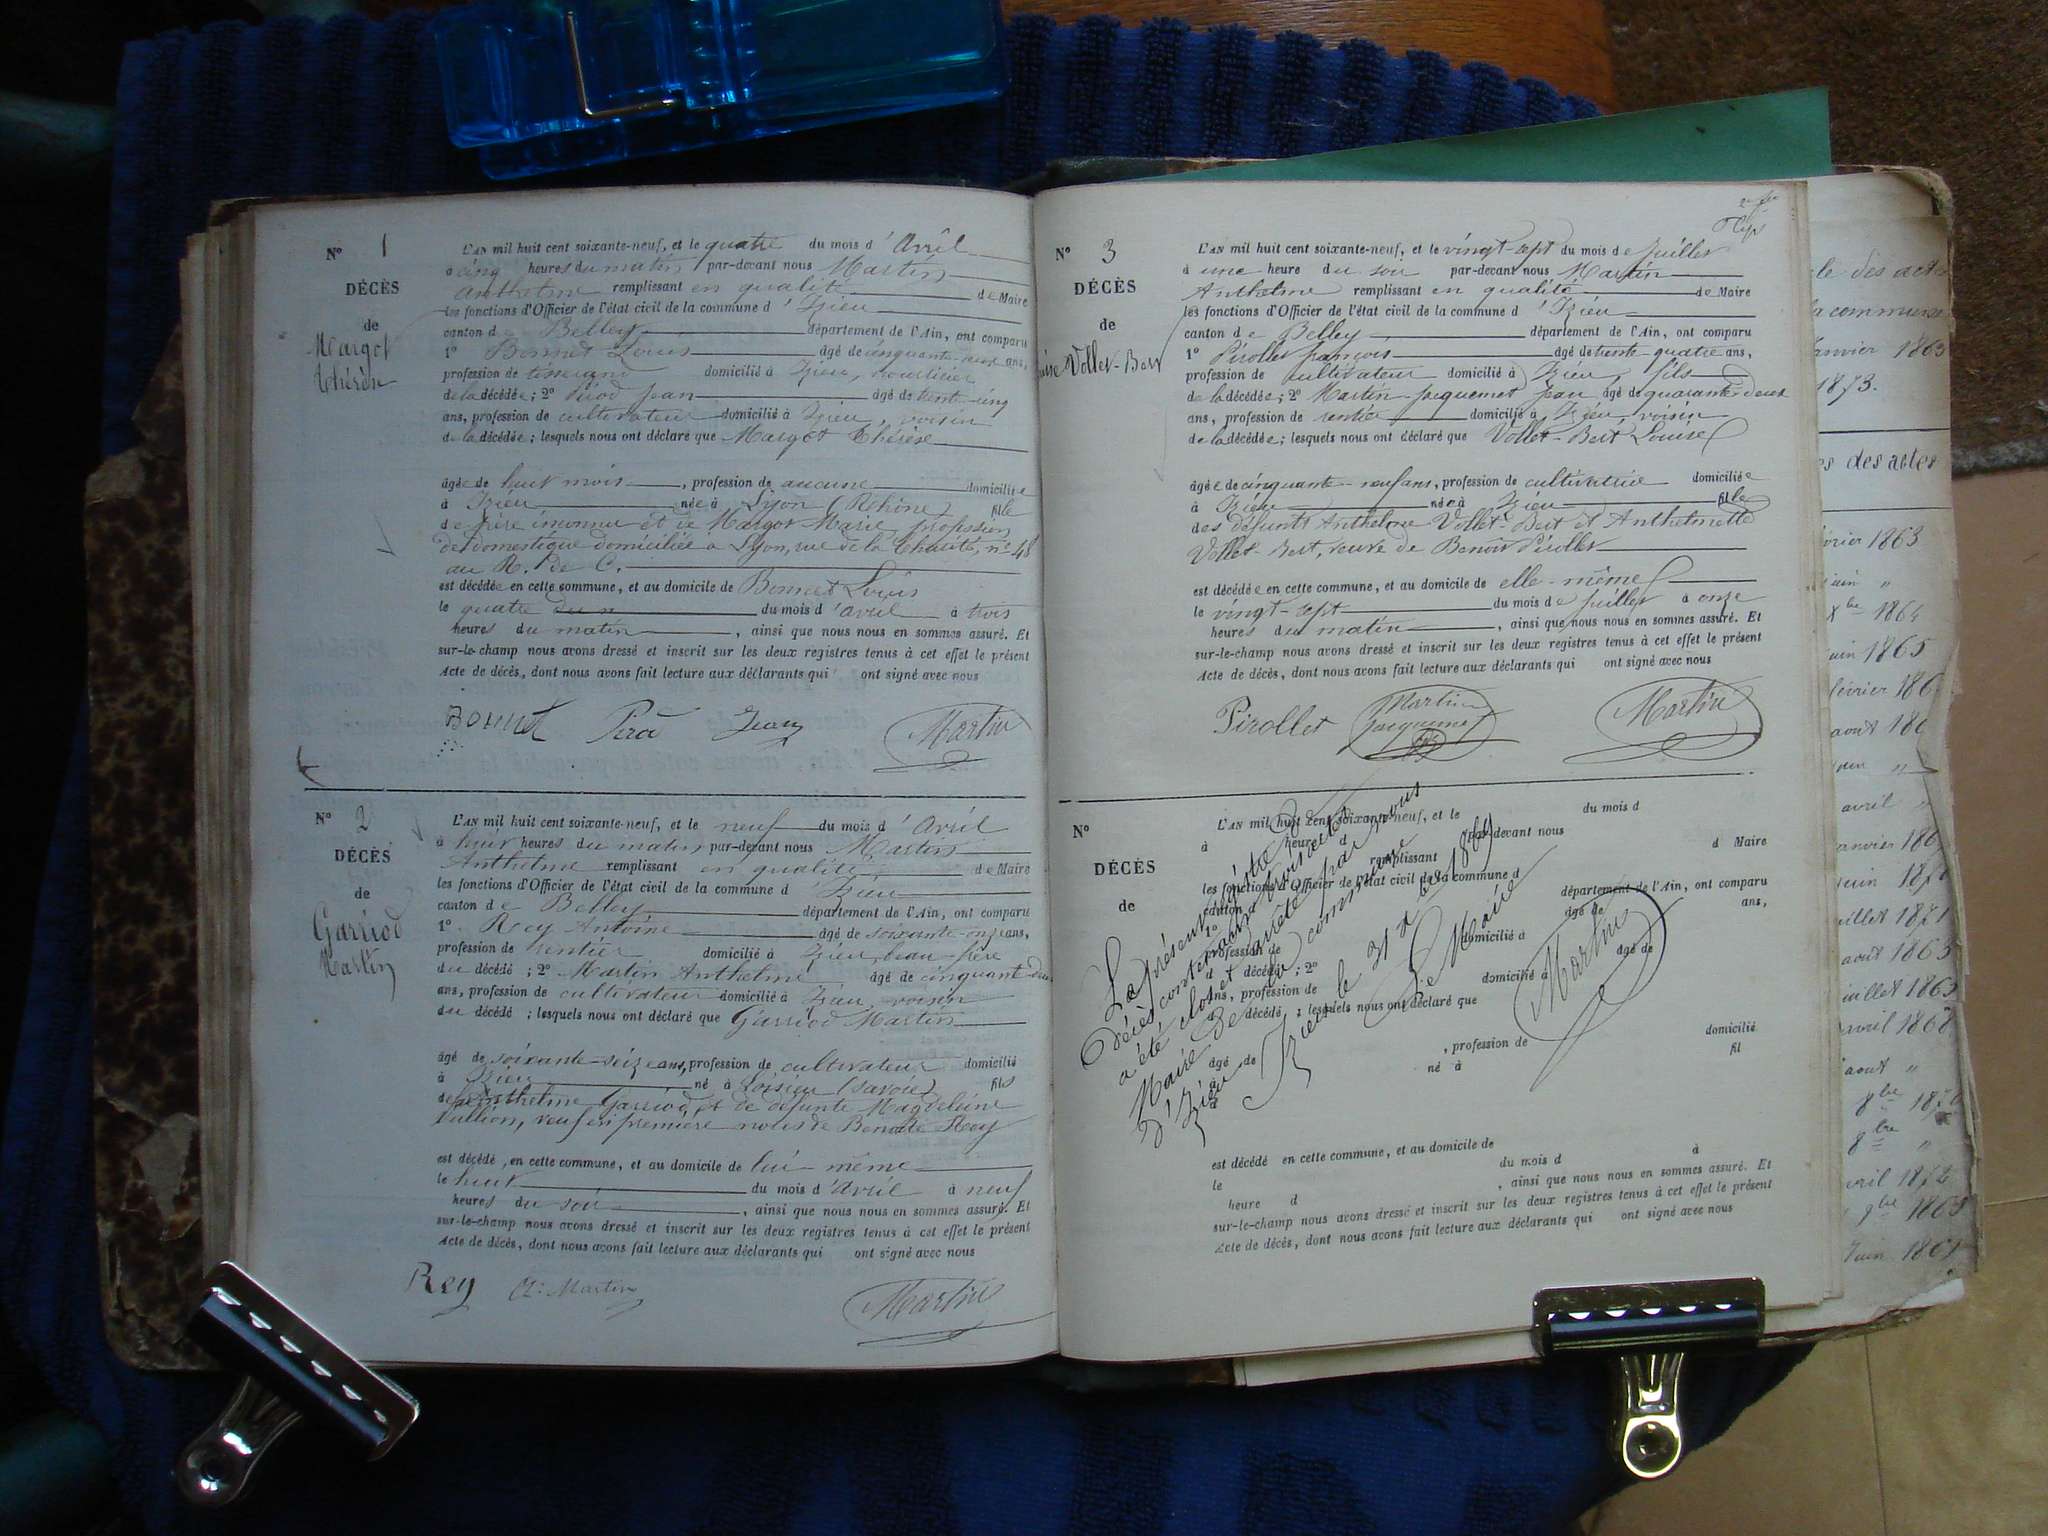 N° 1
DÉCÈS
de
Margot
Thérèse
L'AN mil huit cent soixante-neuf, et le quatre du mois d'Avril
à cinq heures du matin par-devant nous Martin
Anthelme remplissant en qualité de Maire
les fonctions d'Officier de l'état civil de la commune d'Izieu
canton de Belley département de l'Ain, ont comparu
1° Bonnet Louis âgé de cinquante-deux ans,
profession de tisserand domicilié à Izieu, nourricier
de la décédée; 2° Pirod Jean âgé de trente-cinq
ans, profession de cultivateur domicilié à Izieu, voisin
de la décédée; lesquels nous ont déclaré que Margot Thérèse
âgée de huit mois, profession de aucune domiciliée
à Izieu née à Lyon (Rhône) fille
de père inconnu et de Margot Marie, profession
de domestique domiciliée à Lyon, rue de la Charité, n° 48
au R. de C.
est décédée en cette commune, et au domicile de Bonnet Louis
le quatre du mois d'avril à trois
heures du matin, ainsi que nous nous en sommes assuré. Et
sur-le-champ nous avons dressé et inscrit sur les deux registres tenus à cet effet le présent
Acte de décès, dont nous avons fait lecture aux déclarants qui ont signé avec nous
Bonnet Pirod Jean Martin
N° 2
DÉCÈS
de
Garriod
Martin
L'AN mil huit cent soixante-neuf, et le neuf du mois d'Avril
à huit heures du matin par-devant nous Martin
Anthelme remplissant en qualité de Maire
les fonctions d'Officier de l'état civil de la commune d'Izieu
canton de Belley département de l'Ain, ont comparu
1° Rey Antoine âgé de soixante-onze ans,
profession de rentier domicilié à Izieu, beau-frère
du décédé; 2° Martin Anthelme âgé de cinquante-deux
ans, profession de cultivateur domicilié à Izieu, voisin
du décédé; lesquels nous ont déclaré que Garriod Martin
âgé de soixante-seize ans, profession de cultivateur domicilié
à Izieu né à Loisieu (Savoie) fils
de Anthelme Garriod et de défunte Magdeleine
veuf en première noces de Benoite Rey
est décédé, en cette commune, et au domicile de lui-même
le huit du mois d'avril à neuf
heures du soir, ainsi que nous nous en sommes assuré. Et
sur-le-champ nous avons dressé et inscrit sur les deux registres tenus à cet effet le présent
Acte de décès, dont nous avons fait lecture aux déclarants qui ont signé avec nous
Rey A. Martin Martin
N° 3
DÉCÈS
de
Vollet-Bert
L'AN mil huit cent soixante-neuf, et le vingt sept du mois de juillet
à une heure du soir par-devant nous Martin
Anthelme remplissant en qualité de Maire
les fonctions d'Officier de l'état civil de la commune d'Izieu
canton de Belley département de l'Ain, ont comparu
1° Pirollet françois âgé de trente-quatre ans,
profession de cultivateur domicilié à Izieu, fils
de la décédée; 2° Martin-Jacquemet Jean âgé de quarante-deux
ans, profession de rentier domicilié à Izieu, voisin
de la décédée; lesquels nous ont déclaré que Vollet-Bert Louise
âgée de cinquante-neuf ans, profession de cultivatrice domiciliée
à Izieu née à Izieu fille
des défunts Anthelme Vollet-Bert et Anthelmette
Vollet-Bert, veuve de Benoit Pirollet
est décédée en cette commune, et au domicile de elle-même
le vingt-sept du mois de juillet à onze
heures du matin, ainsi que nous nous en sommes assuré. Et
sur-le-champ nous avons dressé et inscrit sur les deux registres tenus à cet effet le présent
Acte de décès, dont nous avons fait lecture aux déclarants qui ont signé avec nous
Pirollet Martin Jacquemet Martin
N°
DÉCÈS
de
L'AN mil huit cent soixante-neuf, et le du mois d
à heure d par-devant nous
remplissant d Maire
les fonctions d'Officier de l'état civil de la commune d
canton département de l'Ain, ont comparu
1° âgé de ans,
profession de domicilié à
d décédé; 2° âgé de
ans, profession de domicilié à
d décédé; lesquels nous ont déclaré que
âgé de, profession de domicilié
à né à fil
d
est décédé en cette commune, et au domicile de
le du mois d à
heure d, ainsi que nous nous en sommes assuré. Et
sur-le-champ nous avons dressé et inscrit sur les deux registres tenus à cet effet le présent
Acte de décès, dont nous avons fait lecture aux déclarants qui ont signé avec nous
Le présent registre de
décès contenant trois actes
a été clos et arrêté par nous
Maire de la commune
d'Izieu
Izieu le 31 Xbre 1869
Le Maire
Martin
le des actes
la commune
Janvier 1863
1873.
es des actes
février 1863
juin "
Xbre 1864
juin 1865
février 186
aout 186
juin "
avril "
janvier 186
juillet 1871
aout 1865
juillet 1865
avril 1868
aout "
8bre 1870
8bre "
avril 1872
9bre 1863
Juin 186